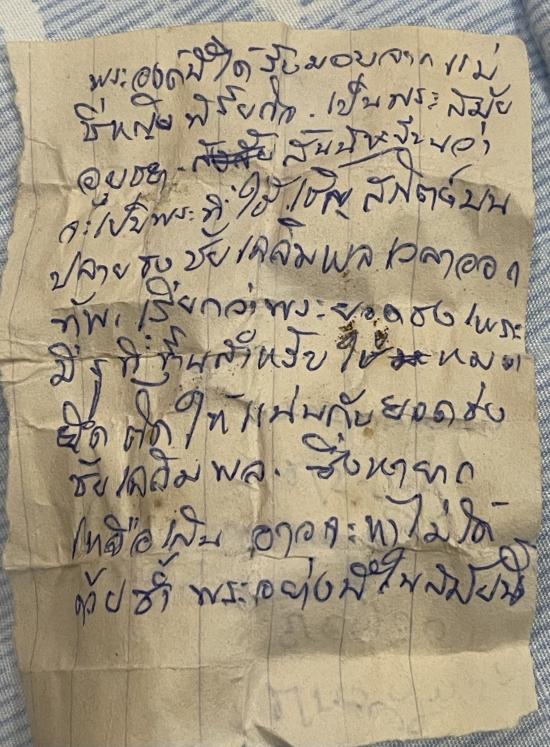 พระองค์นี้ได้รับมอบจากแม่
ชีหญิง เป็นพระสมัย
อยุธยา สันนิษฐานว่า
จะเป็นพระที่ใช้เชิญ บน
ปลายธงชัยเฉลิมพล เวลาออก
ทัพ เรียกว่าพระยอดธง เพราะ
มีรูที่ฐานสำหรับใช้
ยึดติดให้แน่นกับยอดธง
ชัยเฉลิมพล. ซึ่งหายาก
เหลือเกิน อาจจะหาไม่ได้
ด้วยซ้ำ พระอย่างนี้ในสมัยนี้